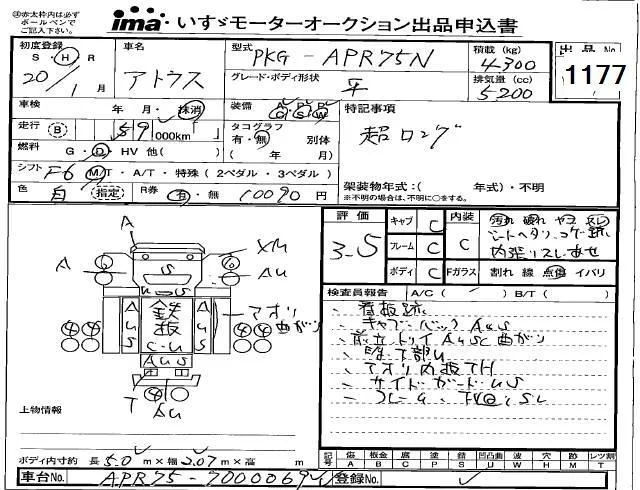 ㊟赤太枠内は必ず
ボールペンで
ご記入下さい。
ima いすゞモーターオークション出品申込書
初度登録 S・H・R 20/1月
車名 アトラス
型式 PKG-APR75N
積載 (kg) 4300
出品No. 1177
グレード・ボディ形状 平
排気量 (cc) 5200
車検 年 月・抹消
装備 A C P S P W
特記事項
超ロング
走行 B 59,000km
タコグラフ 有・無 別体 ( 年 月)
燃料 G・D・HV 他( )
シフト F6 M/T・A/T・特殊(2ペダル・3ペダル)
架装物年式:( 年式)・不明
※不明の場合は、不明に○をする。
色 白 指定 R券 有・無 10090円
評価 3-5
キャブ C
フレーム C
ボディ C
内装 C
汚れ 破れ ヤコ
シートヘタリ、コゲ
Fガラス 割れ 線 点傷 イバリ
検査員報告 A/C( ) B/T( )
、看板跡
、キャブバック AUS
、前立 トリイ AUSC 曲がり
、アオリ内板 TH
、サイドガード US
A
A
XM
AU
US
U S
A U S
鉄板
C・U
A U S
アオリ
曲がり
④ ④ ④ ④
AUS
T
AU
上物情報
ボディ内寸約 長 5.0 m×幅 2.07 m×高 m
記号 傷 A 板金 B 腐 C 補 P サビ S 凹凸曲 U 波 W 穴 H 跡 M レツ割 T
車台No. APR75-7000069
登録No.